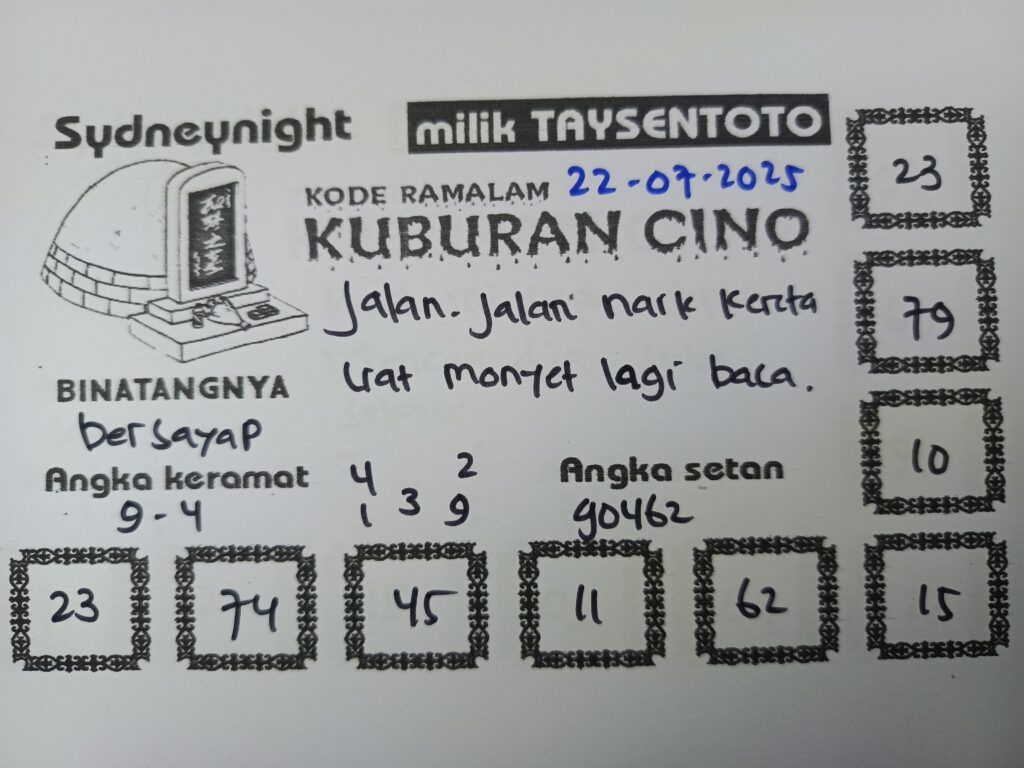 Sydneynight
milik TAYSENTOTO
KODE RAMALAM 22-07-2025
KUBURAN CINO
Jalan. Jalan nark kerita
liat monyet lagi baca.
BINATANGNYA
bersayap
Angka keramat
9-4
4 2
3
1 9
Angka setan
90462
23
79
10
23 74 45 11 62 15